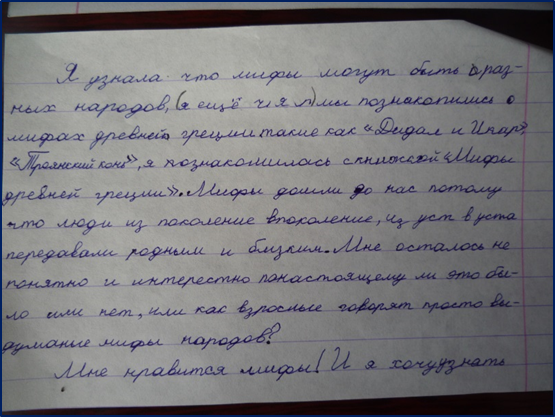 Я узнала что мифы могут быть в раз-
ных народов, (я ещё ч и я л) мы познакопились о
мифах древней греции такие как "Дидал и Икар",
"Троянский конь", я познакомилась с книжкой "Мифы
древней греции". Мифы дошли до нас потому
что люди из поколение впоколение, из уст в уста
передавали родным и близким. Мне осталось не
понятно и интерестно понастоящему ли это бы-
ло или нет, или как взрослые говорят просто ви-
думаные мифы народов?
Мне нравится мифы! И я хочуузнать